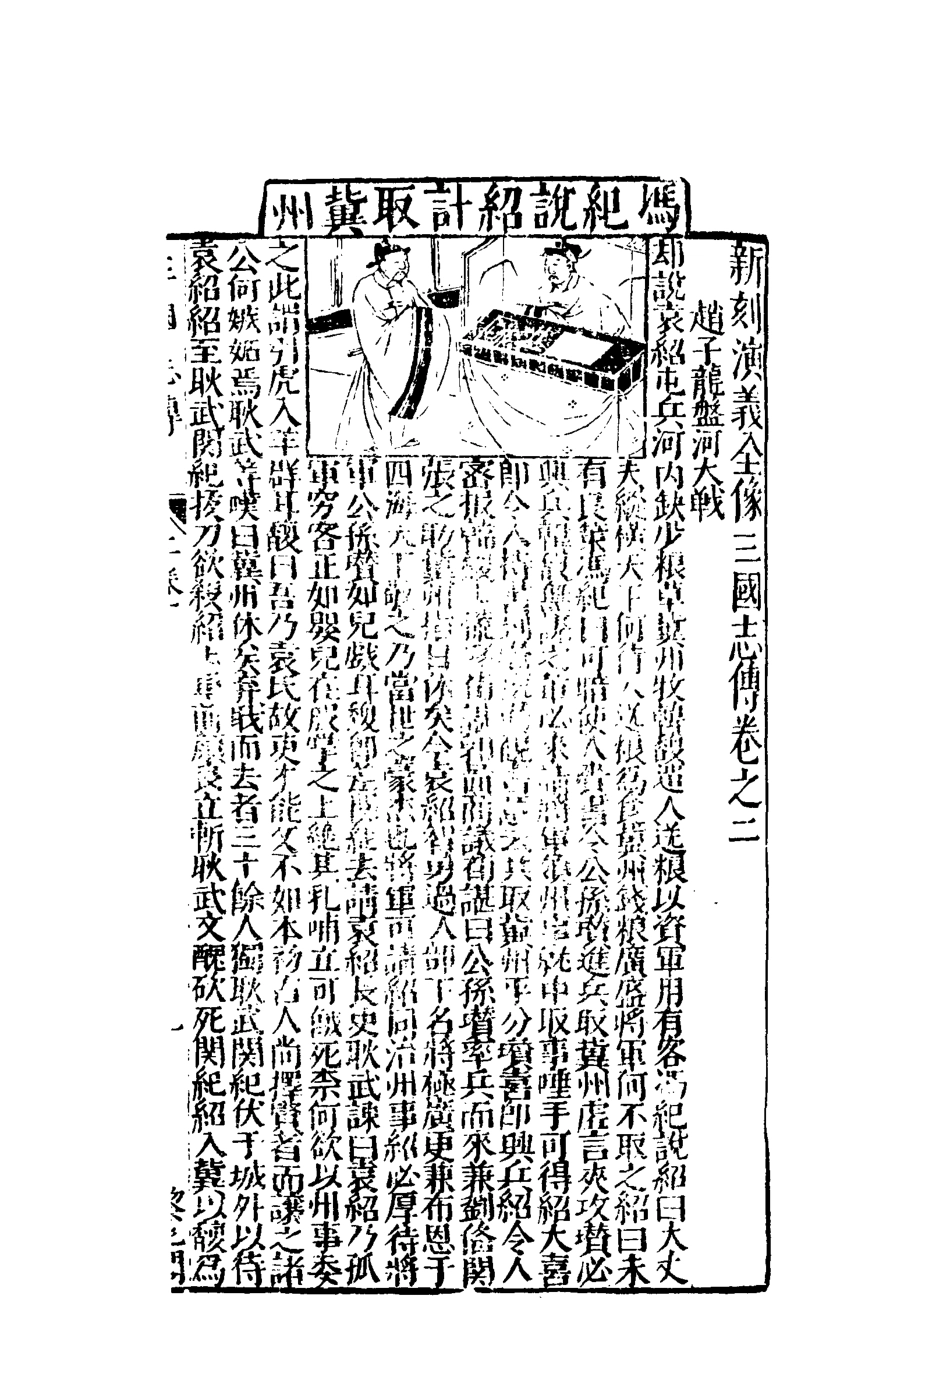 馮紀說紹計取冀州
新刻演義全像三國志傳卷之二
趙子龍盤河大戰
却說袁紹屯兵河內缺少粮草冀州牧韓馥遣人送粮以資軍用有客馮紀說紹曰大丈
夫縱橫天下何待人送粮為食冀州錢粮廣盛將軍何不取之紹曰未
有良策馮紀曰可暗使人賫書令公孫瓚進兵取冀州虛言夾攻瓚必
興兵韓馥無謀之輩必來請將軍領州事就中取事唾手可得紹大喜
即令人持書到瓚處瓚見說共取冀州平分瓚喜即興兵紹令人
密報韓馥馥慌荀諶郭圖商議荀諶曰公孫瓚率兵而來兼劉俻関
張之助冀州休矣今袁紹智勇過人部下名將極廣更兼布恩于
四海天下敬之乃當世之豪杰也將軍可請紹同治州事紹必厚待將
軍公孫瓚如兒戲耳馥即差関純去請袁紹長史耿武諫曰袁紹乃孤
軍穷客正如嬰兒在股掌之上絕其乳哺立可餓死柰何欲以州事委
之此謂引虎入羊群耳馥曰吾乃袁氏故吏才能又不如本初古人尚擇賢者而讓之諸
公何嫉妬焉耿武等嘆曰冀州休矣弃戝而去者三十餘人獨耿武関紀伏于城外以待
袁紹紹至耿武関紀拔刀欲殺紹上將顏良立斬耿武文醜砍死関紀紹入冀以馥為
三國志傳
二卷